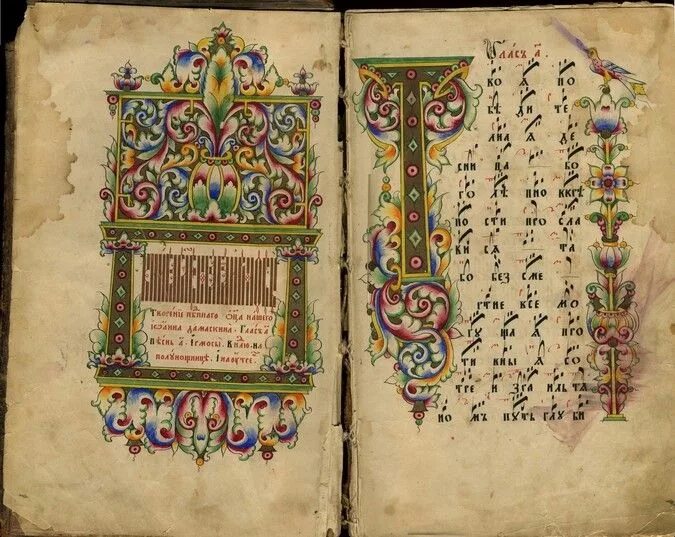 творение препⷣбнаго ѻц҃а нашего
іѡанна дамаскина. гласъ а҃
пѣснь а҃. ірмосы. в нⷣлю. на
полунощнице. і на оутрⷩ҇е.
Гласъ а҃.
Т воя по
бѣ ди те
лна я де
сни ца бо
го лѣ пно в крѣ
по сти про сла
ви ся та
бо без сме
ртне все мо
гу ща я про
ти вны я со
тре и зра ильтя
но мъ путь глу би